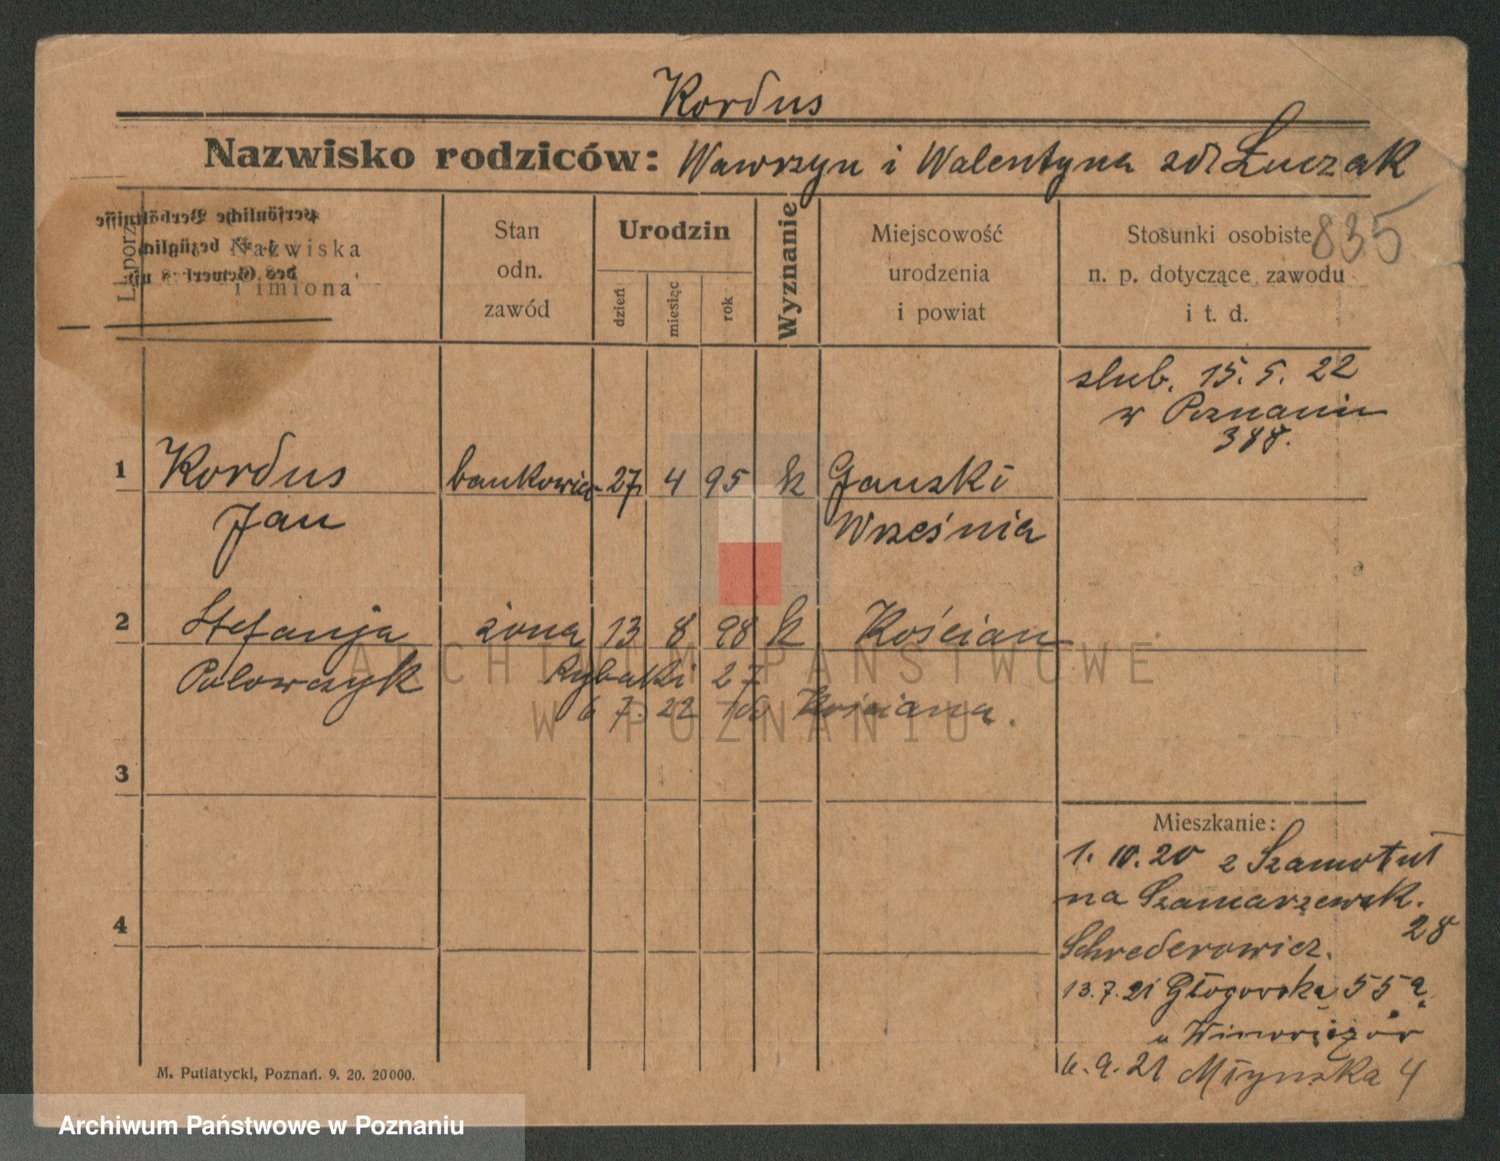 Kordus
Nazwisko rodziców: Wawrzyn i Walentyna zd Łuczak
835
L. porz.
Nazwiska
i imiona
Stan
odn.
zawód
Urodzin
dzień
miesięc
rok
Wyznanie
Miejscowość
urodzenia
i powiat
Stosunki osobiste
n. p. dotyczące zawodu
i t. d.
Persönliche Verhältnisse
bezüglich
des Gewerbes
ślub. 15. 5. 22
w Poznaniu
388.
1 Kordus bankowiec 27 4 95 k Gonski
Jan Września
2 Stefanja żona 13 8 98 k Kościan
Polowczyk Rybaki 27
6 7. 22 do Kościana.
3
4
Mieszkanie:
1. 10. 20 z Szamotuł
na Szamarzewsk.
28
Schrederowicz.
13. 7. 21 Głogowska 55a
u
6. 9. 21 Młyńska 4
M. Putiatycki, Poznań. 9. 20. 20000.
ARCHIWUM PAŃSTWOWE
W POZNANIU
Archiwum Państwowe w Poznaniu